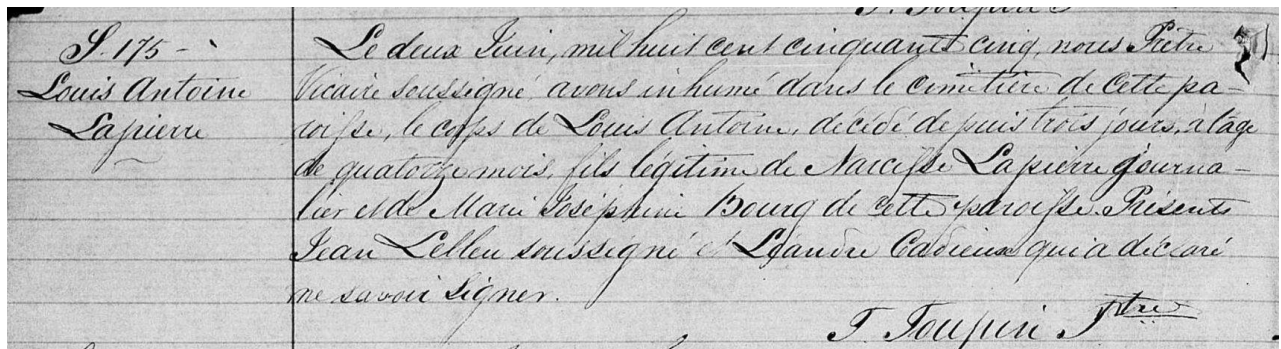 S. 175 -
Louis Antoine
Lapierre
Le deux Juin, mil huit cent cinquante cinq, nous Prêtre
Vicaire soussigné, avons inhumé dans le cimetière de cette pa-
roisse, le corps de Louis Antoine, décédé depuis trois jours, à l'age
de quatorze mois, fils légitime de Narcisse Lapierre journa-
lier et de Marie Joséphine Bourg de cette paroisse. Présents
Jean Lelleu soussigné et Léandre Cadieux qui a déclaré
ne savoir signer.
T. Toupin Ptre